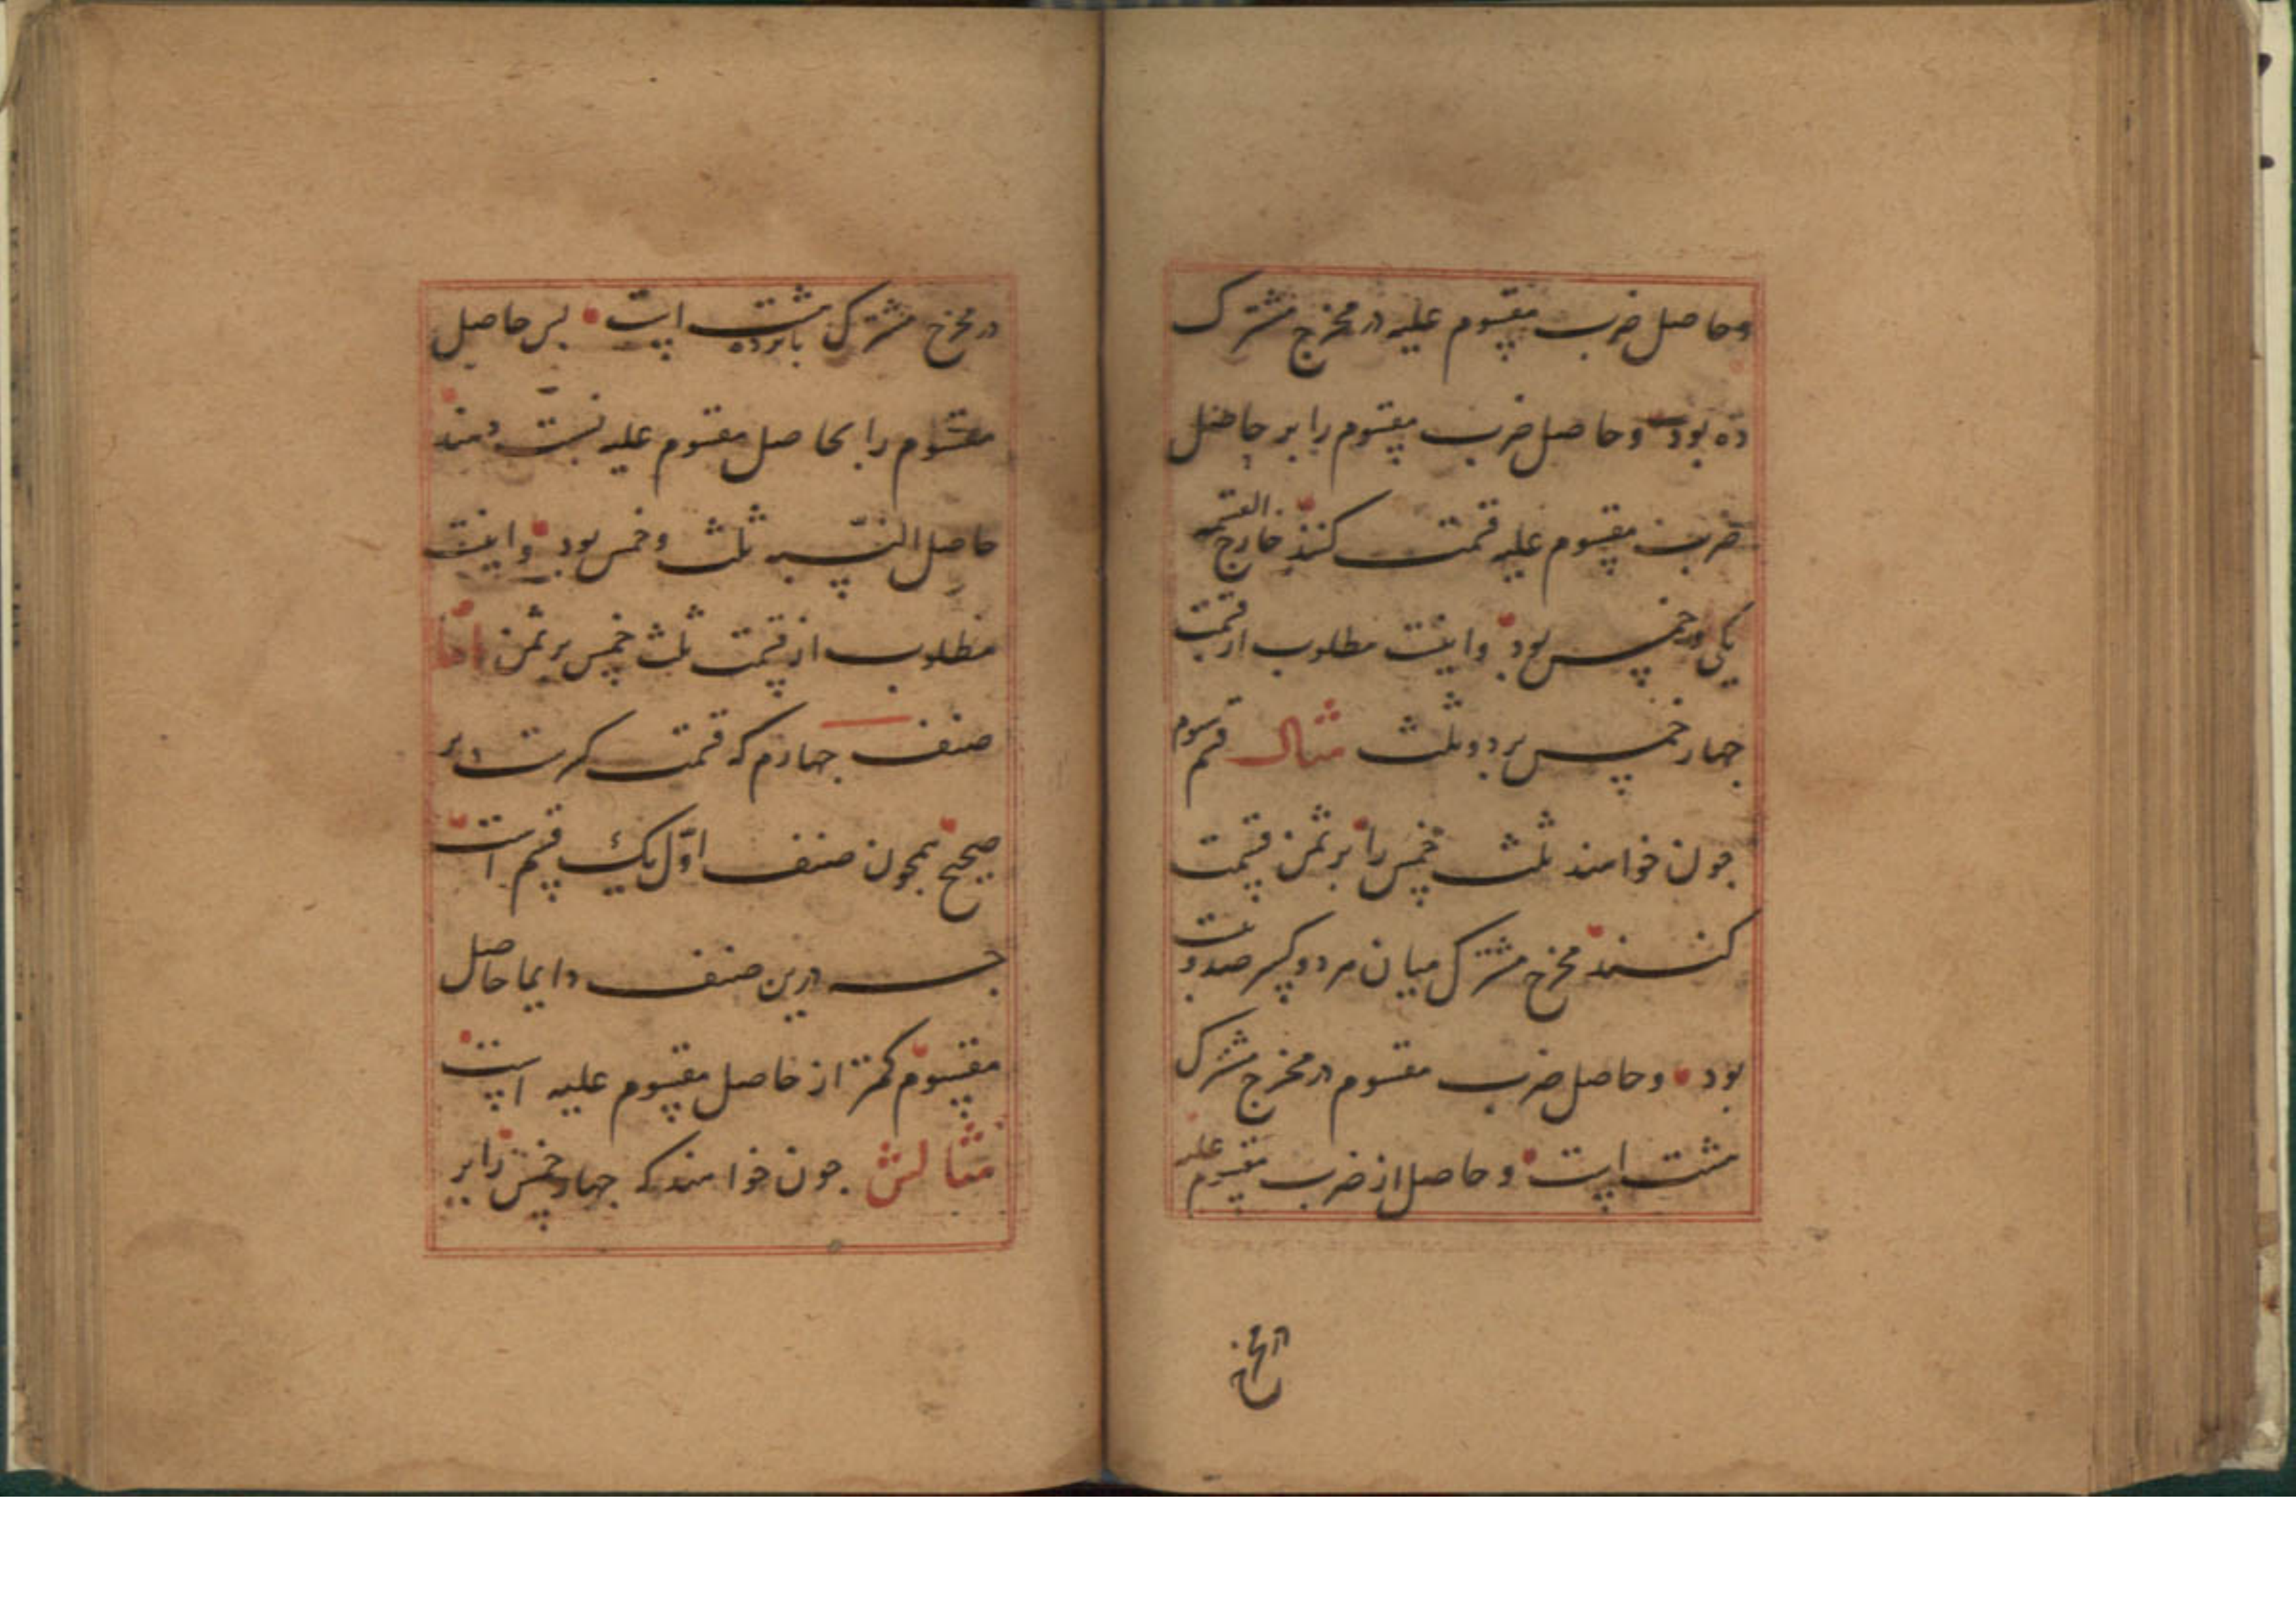 وحاصل ضرب مقسوم علیه در مخرج مشترک
ده بود وحاصل ضرب مقسوم را بر حاصل
ضرب مقسوم علیه قسمت کنند خارج القسمه
یکی وخمس بود واینست مطلوب از قسمت
چهار خمس بر دو ثلث مثال قسم سوم
چون خواهند ثلث خمس را بر ثمن قسمت
کنند مخرج مشترک میان هر دو کسر صد وبیست
بود وحاصل ضرب مقسوم در مخرج مشترک
هشت است وحاصل از ضرب مقسوم علیه
در مخرج
در مخرج مشترک پانزده است پس حاصل
مقسوم را بحاصل مقسوم علیه نسبت دهند
حاصل النسبه ثلث وخمس بود واینست
مطلوب از قسمت ثلث خمس بر ثمن اما
صنف چهارم که قسمت کسرست بر
صحیح همچون صنف اول یک قسم است
چه درین صنف دایما حاصل
مقسوم کمتر از حاصل مقسوم علیه است
مثالش چون خواهند که چهار خمس را بر